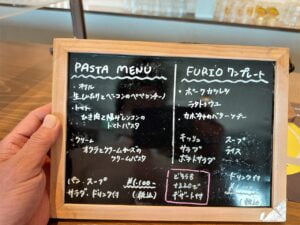 PASTA MENU
・オイル
生しいたけとベーコンのペペロンチーノ
・トマト
むき肉と揚げレンコンの
トマトパスタ
・クリーム
オクラとクリームチーズの
クリームパスタ
パン・スープ
サラダ・ドリンク付
¥1,100-
(税込)
FURIO ワンプレート
・ポークカツレツ
ラタトゥユ
・カボチャの
キッシュ スープ
サラダ ライス
ポテトサラダ
どちらも
+220で
デザート付
ドリンク付
(税込)